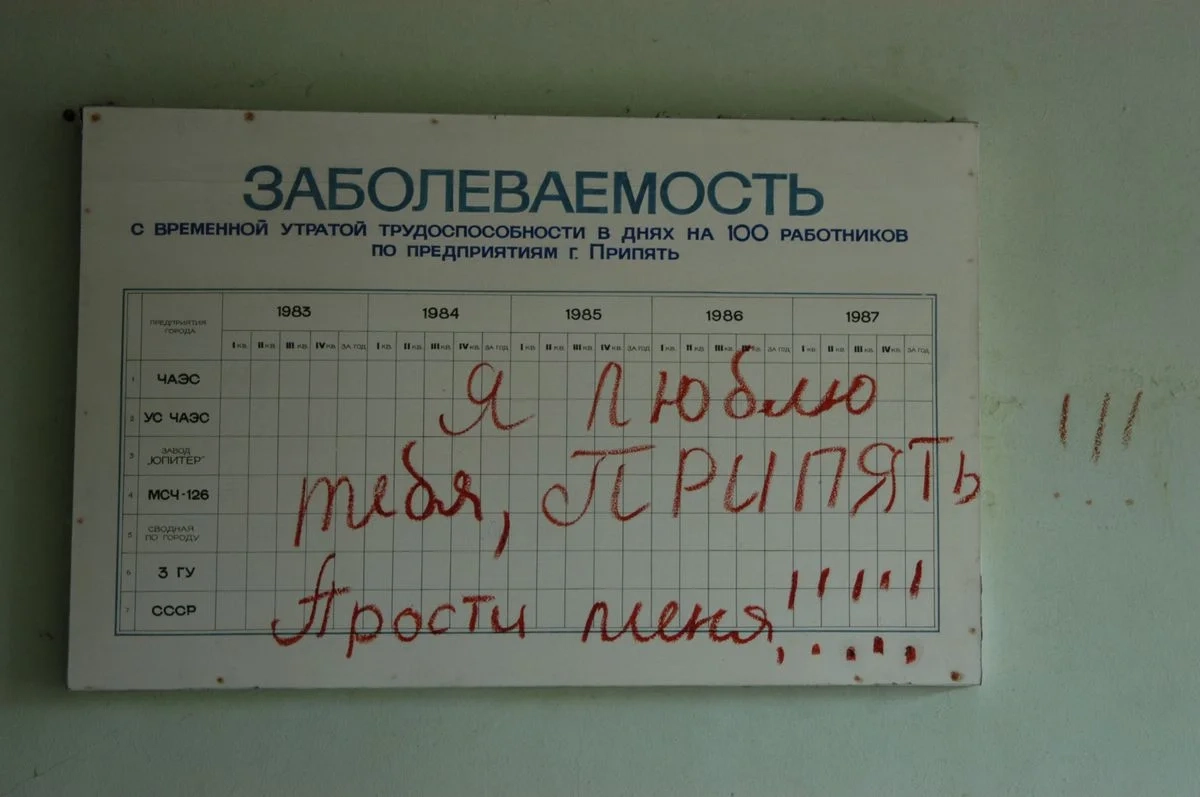 ЗАБОЛЕВАЕМОСТЬ
С ВРЕМЕННОЙ УТРАТОЙ ТРУДОСПОСОБНОСТИ В ДНЯХ НА 100 РАБОТНИКОВ
ПО ПРЕДПРИЯТИЯМ г. Припять
ПРЕДПРИЯТИЯ
ГОРОДА
1983 1984 1985 1986 1987
I КВ. II КВ. III КВ. IV КВ. ЗА ГОД I КВ. II КВ. III КВ. IV КВ. ЗА ГОД I КВ. II КВ. III КВ. IV КВ. ЗА ГОД I КВ. II КВ. III КВ. IV КВ. ЗА ГОД I КВ. II КВ. III КВ. IV КВ. ЗА ГОД
1 ЧАЭС
2 УС ЧАЭС
3 ЗАВОД
"ЮПИТЕР"
4 МСЧ-126
5 СВОДНАЯ
ПО ГОРОДУ
6 3 ГУ
7 СССР
Я люблю
тебя, ПРИПЯТЬ !!!
Прости меня!!!!!